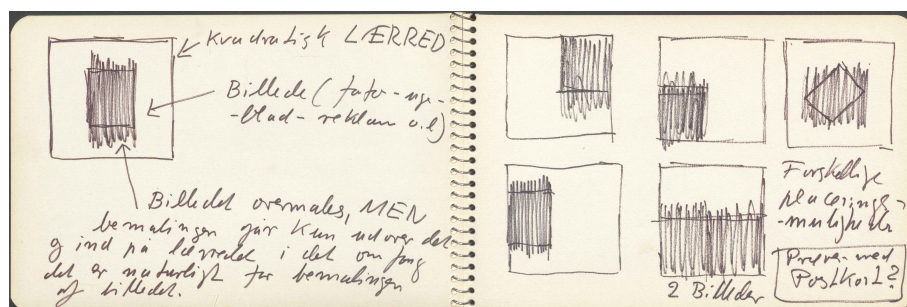 Kvadratisk LÆRRED
Billede (foto-uge-
-blad-reklame o.l)
Billedet overmales, MEN
bemalingen går kun udover det
og ind på lærredet i det omfang
det er naturligt for bemalingen
af billedet.
Forskellige
placerings-
-muligheder
Prøver med
Postkort?
2 Billeder